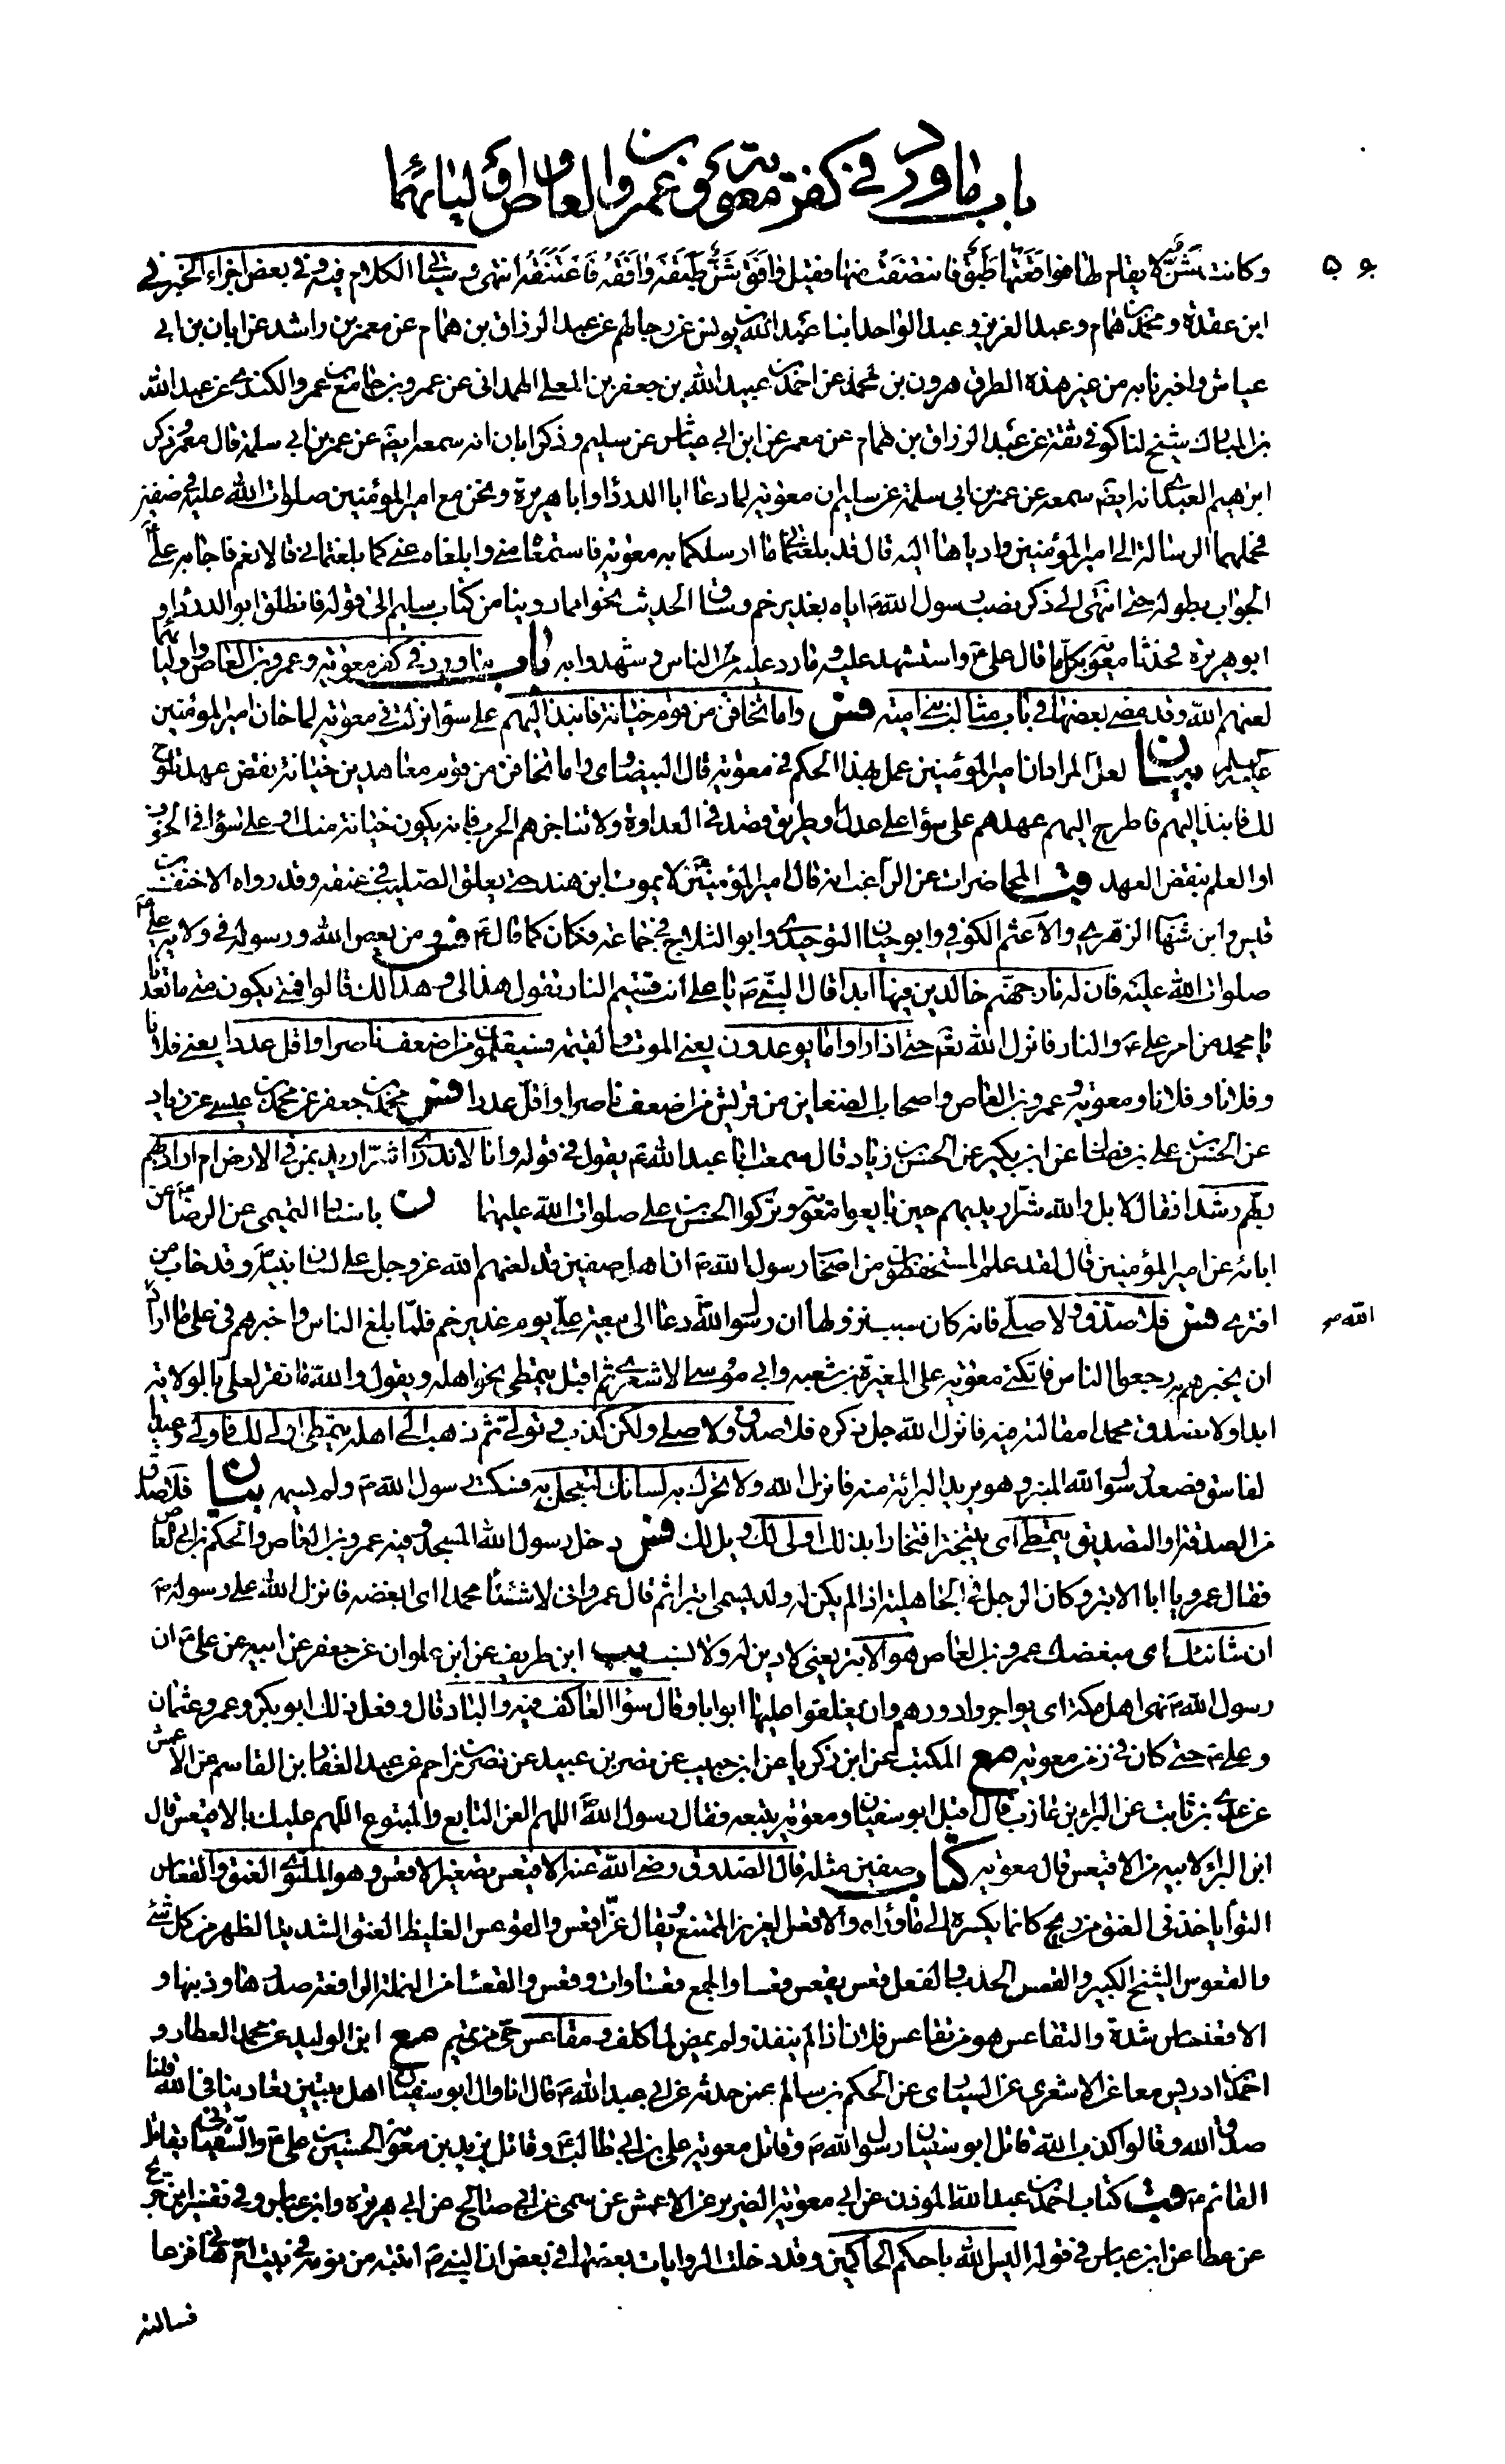 باب ما ورد في كفر معوية وعمرو بن العاص واوليائهما
۵۶۰
وكانت شن لا يقام لها فواقعتها طبق فانتصفت منها فقيل وافق شن طبقه وافقه فاعتنقه انتهى وسيأتي الكلام فيه وفي بعض اجزاء الخبر في
ابن عقدة ومحمد بن همام وعبد العزيز وعبد الواحد ابنا عبد الله بن يونس عن رجالهم عن عبد الرزاق بن همام عن معمر بن راشد عن ابان بن ابي
عياش واخبرنا به من غير هذه الطرق هرون بن محمد عن احمد بن عبيد الله بن جعفر بن المعلى الهمداني عن عمرو بن جامع بن عمرو الكندي عن عبد الله
بن المبارك شيخ لنا كوفي ثقة عن عبد الرزاق بن همام عن معمر عن ابن ابي عياش عن سليم وذكر ابان انه سمعه ايضا عن عمر بن ابي سلمة قال معمر وذكر
ابرهيم العبدي انه ايضا سمعه عن عمر بن ابي سلمة عن سليم ان معوية لما دعا ابا الدرداء وابا هريرة ونحن مع امير المؤمنين صلوات الله عليه في صفين
فحملهما الرسالة الى امير المؤمنين وادياها اليه قال قد بلغتماني ما ارسلكما به معوية فاستمعا مني وابلغاه عني كما بلغتماني قالا نعم فاجابه علي ع
الجواب بطوله حتى انتهى الى ذكر نصب رسول الله ص اياه بغدير خم وساق الحديث نحوا مما روينا من كتاب سليم الى قوله فانطلق ابو الدرداء و
ابو هريرة فحدثا معوية بكل ما قال علي ع واستشهد عليه وما رد عليه الناس وشهدوا به باب ما ورد في كفر معوية وعمرو بن العاص واوليائهما
لعنهم الله وقد مضى بعضها في باب مثالب بني امية فس واما تخافن من قوم خيانة فانبذ اليهم على سواء نزلت في معوية لما خان امير المؤمنين
عليه السلام بيان لعل المراد ان امير المؤمنين عمل بهذا الحكم في معوية قال البيضاوي واما تخافن من قوم معاهدين خيانة نقض عهد تلوح
لك فانبذ اليهم فاطرح اليهم عهدهم على سواء على عدل وطريق قصد في العداوة ولا تناجزهم الحرب فانه يكون خيانة منك او على سواء في الخوف
او العلم بنقض العهد قب المحاضرات عن الراغب انه قال امير المؤمنين ع لا يموت ابن هند حتى يعلق الصليب في عنقه وقد رواه الاحنف بن
قيس وابن شهاب الزهري والاعثم الكوفي وابو حيان التوحيدي وابو الثلاج في جماعة فكان كما قال ع فس ومن يعص الله ورسوله في ولاية علي
صلوات الله عليه فان له نار جهنم خالدين فيها ابدا قال النبي ص يا علي انت قسيم النار تقول هذا لي وهذا لك قالوا فمتى يكون متى ما تعدنا
يا محمد من امر علي ع والنار فانزل الله تع حتى اذا راوا ما يوعدون يعني الموت والقيمة فسيعلمون من اضعف ناصرا واقل عددا يعني فلانا
وفلانا وفلانا ومعوية وعمرو بن العاص واصحاب الضغاين من قريش من اضعف ناصرا واقل عددا فس محمد بن جعفر عن محمد بن عيسى عن زياد
عن الحسن بن علي بن فضال عن ابن بكير عن الحسن بن زياد قال سمعت ابا عبد الله ع يقول في قوله وانا لا ندري اشر اريد بمن في الارض ام اراد بهم
ربهم رشدا فقال لا بل والله شر اريد بهم حين بايعوا معوية وتركوا الحسن بن علي صلوات الله عليهما ن باسناد التميمي عن الرضا ع عن
ابائه عن امير المؤمنين قال لقد علم المستحفظون من اصحاب رسول الله ص ان اهل صفين قد لعنهم الله عز وجل على لسان نبيه ص وقد خاب من
افترى فس فلا صدق ولا صلى فانه كان سبب نزولها ان رسول الله ص دعا الى بيعة علي يوم غدير خم فلما بلغ الناس واخبرهم في علي ما اراد
الله
ان يخبرهم به رجعوا الناس فاتكئ معوية على المغيرة بن شعبه وابي موسى الاشعري ثم اقبل يتمطى نحو اهله ويقول والله ما نقر لعلي بالولاية
ابدا ولا نصدق محمدا مقالته فيه فانزل الله جل ذكره فلا صدق ولا صلى ولكن كذب وتولى ثم ذهب الى اهله يتمطى اولى لك فاولى وعيد
لفاسق فصعد رسول الله المنبر وهو يريد البرائة منه فانزل الله ولا تحرك به لسانك لتعجل به فسكت رسول الله ص ولم يسمه بيان فلا صدق
من الصدقة او التصديق يتمطى اي يتبختر افتخارا بذلك اولى لك ويل لك فس دخل رسول الله المسجد وفيه عمرو بن العاص والحكم بن ابي العاص
فقال عمرو يا ابا الابتر وكان الرجل في الجاهلية اذا لم يكن له ولد يسمى ابتر ثم قال عمرو اني لاشنأ محمدا اي ابغضه فانزل الله على رسوله ص
ان شانئك اي مبغضك عمرو بن العاص هو الابتر يعني لا دين له ولا نسب يب ابن طريف عن ابن علوان عن جعفر عن ابيه عن علي ع ان
رسول الله ص نهى اهل مكة ان يواجروا دورهم وان يغلقوا عليها ابوابا وقال سواء العاكف فيه والباد قال وفعل ذلك ابو بكر وعمر وعثمان
وعلي ع حتى كان في زمن معوية مع المكتب عن ابن زكريا عن ابن حبيب عن نضر بن عبيد عن نصر بن مزاحم عن عبد الغفار بن القاسم عن الاعمش
عن عدي بن ثابت عن البراء بن عازب قال اقبل ابو سفيان ومعوية يتبعه فقال رسول الله ص اللهم العن التابع والمتبوع اللهم عليك بالاقيعس قال
ابن البراء لابيه من الاقيعس قال معوية كتاب صفين مثله قال الصدوق رضي الله عنه الاقيعس تصغير الاقعس وهو الملتوي العنق والقعاس
التواء ياخذ في العنق من ريح كانما يكسره الى ما وراه والاقعس العزيز الممتنع ويقال عز اقعس والقوعس الغليظ العنق الشديد الظهر من كل شئ
والقعوس الشيخ الكبير والقعس الحدب والفعل قعس يقعس قعسا والجمع قعساوات وقعس والقعساء من النملة الرافعة صدرها وذنبها و
الاقعنساس شدة والتقاعس هو من تقاعس فلان اذا لم ينفذ ولم يمض لما كلف ومقاعس حي من تميم مع ابن الوليد عن محمد العطار و
احمد بن ادريس معا عن الاشعري عن السياري عن الحكم بن سالم عمن حدثه عن ابي عبد الله ع قال انا وال ابو سفيان اهل بيتين تعادينا في الله قلنا
صدق الله وقالوا كذب الله قاتل ابو سفيان رسول الله ص وقاتل معوية علي بن ابي طالب ع وقاتل يزيد بن معوية الحسين بن علي ع والسفياني يقاتل
القائم ع قب كتاب احمد بن عبد الله المؤذن عن ابي معوية الضرير عن الاعمش عن سمي عن ابي صالح عن ابي هريرة وابن عباس وفي تفسير ابن جريح
عن عطا عن ابن عباس في قوله اليس الله باحكم الحاكمين وقد دخلت الروايات بعضها في بعض ان النبي ص انتبه من نومه في بيت ام هاني فزعا
فسالته